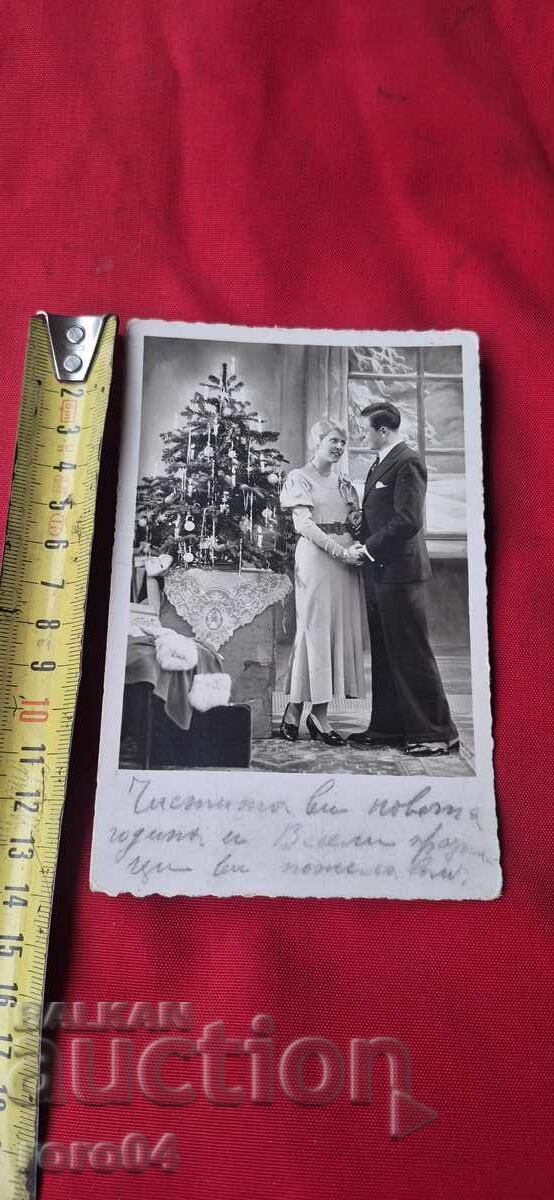 2
3
4
5
6
7
8
9
10
11
12
13
14
15
16
17
Честита ви новата
година и Весели праз-
ци ви пожелавам.
BALKAN
auction
roro04